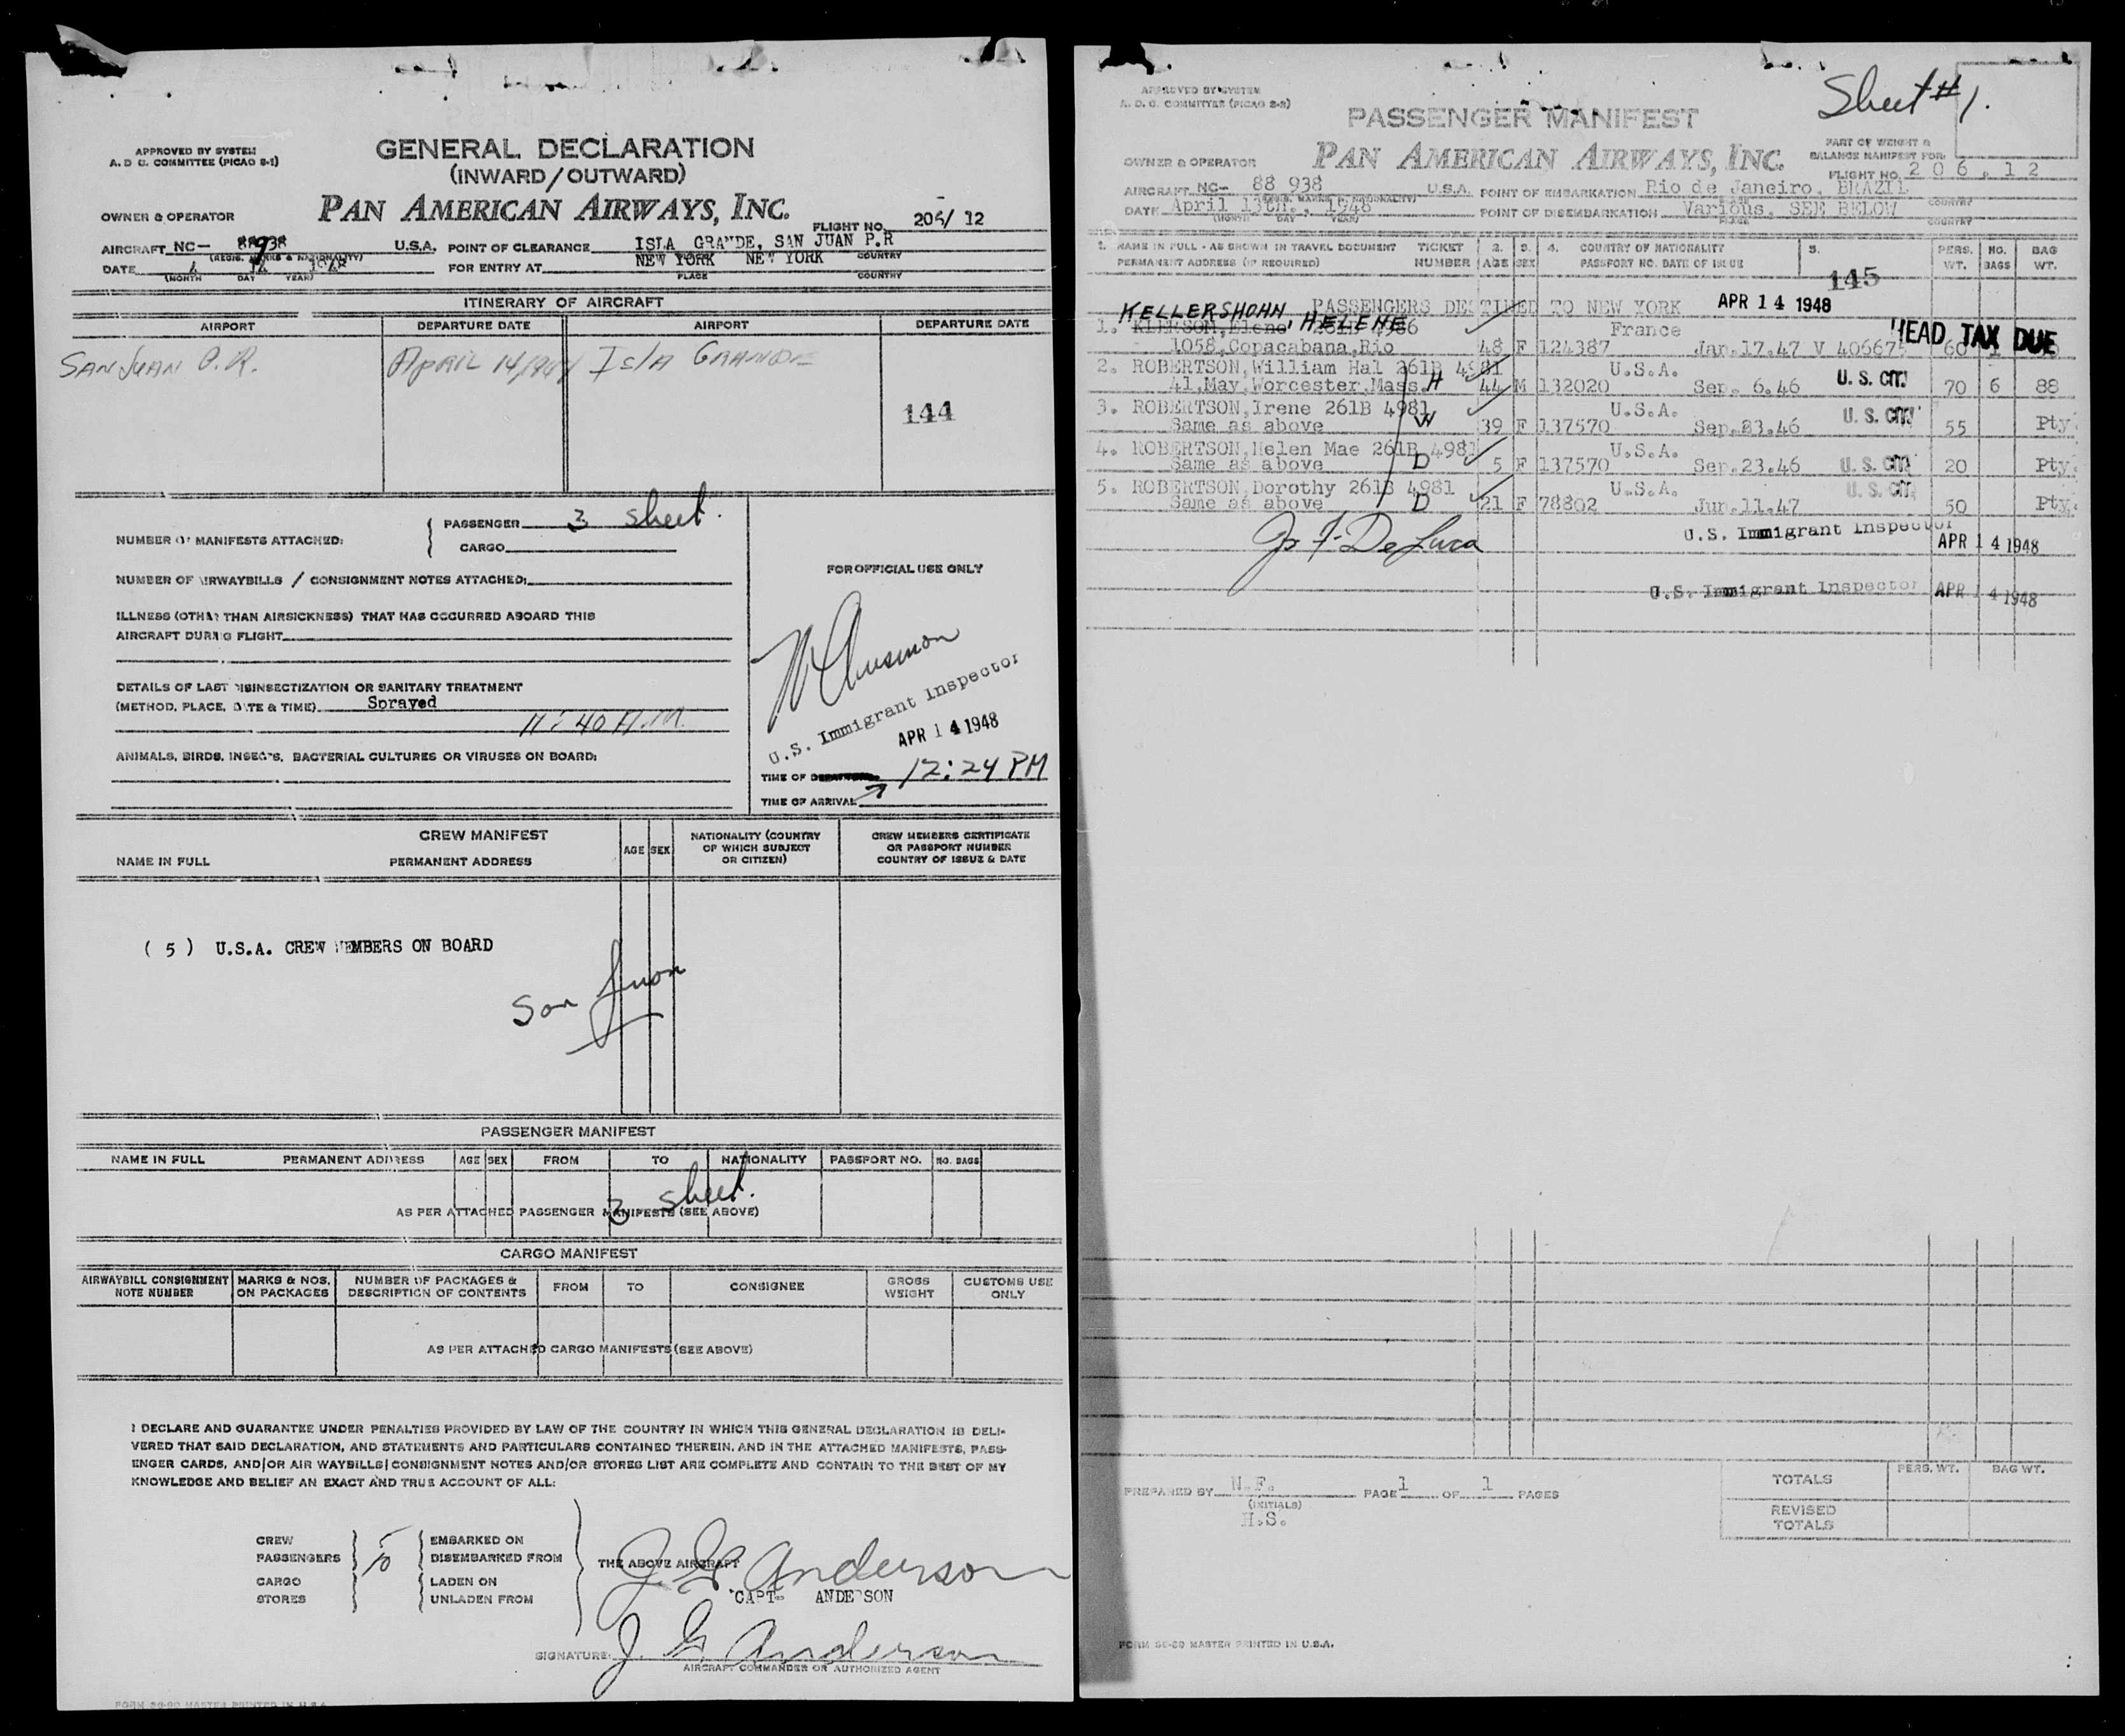 APPROVED BY SYSTEM
A. D. C. COMMITTEE (PICAO S-1)
GENERAL DECLARATION
(INWARD/OUTWARD)
OWNER & OPERATOR
PAN AMERICAN AIRWAYS, INC.
FLIGHT NO. 206/ 12
AIRCRAFT NC- 88938 U.S.A. POINT OF CLEARANCE ISLA GRANDE, SAN JUAN P.R
(REGIS. MARKS & NATIONALITY) COUNTRY
DATE 4 14 1948 FOR ENTRY AT NEW YORK NEW YORK
(MONTH DAY YEAR) PLACE COUNTRY
ITINERARY OF AIRCRAFT
AIRPORT DEPARTURE DATE AIRPORT DEPARTURE DATE
SAN JUAN P.R. APRIL 14/1948 ISLA GRANDE
144
NUMBER OF MANIFESTS ATTACHED: PASSENGER 3 sheet.
CARGO
NUMBER OF AIRWAYBILLS / CONSIGNMENT NOTES ATTACHED:
FOR OFFICIAL USE ONLY
ILLNESS (OTHER THAN AIRSICKNESS) THAT HAS OCCURRED ABOARD THIS
AIRCRAFT DURING FLIGHT
DETAILS OF LAST DISINSECTIZATION OR SANITARY TREATMENT
(METHOD, PLACE, DATE & TIME) Sprayed
11:40 A.M.
U.S. Immigrant Inspector
APR 14 1948
ANIMALS, BIRDS, INSECTS, BACTERIAL CULTURES OR VIRUSES ON BOARD:
TIME OF DEPARTURE 12:24 PM
TIME OF ARRIVAL
CREW MANIFEST
NAME IN FULL PERMANENT ADDRESS AGE SEX
NATIONALITY (COUNTRY OF WHICH SUBJECT OR CITIZEN)
CREW MEMBERS CERTIFICATE OR PASSPORT NUMBER COUNTRY OF ISSUE & DATE
( 5 ) U.S.A. CREW MEMBERS ON BOARD
San Juan
PASSENGER MANIFEST
NAME IN FULL PERMANENT ADDRESS AGE SEX FROM TO NATIONALITY PASSPORT NO. NO. BAGS
3 sheet.
AS PER ATTACHED PASSENGER MANIFESTS (SEE ABOVE)
CARGO MANIFEST
AIRWAYBILL CONSIGNMENT NOTE NUMBER MARKS & NOS. ON PACKAGES NUMBER OF PACKAGES & DESCRIPTION OF CONTENTS FROM TO CONSIGNEE GROSS WEIGHT CUSTOMS USE ONLY
AS PER ATTACHED CARGO MANIFESTS (SEE ABOVE)
I DECLARE AND GUARANTEE UNDER PENALTIES PROVIDED BY LAW OF THE COUNTRY IN WHICH THIS GENERAL DECLARATION IS DELI-
VERED THAT SAID DECLARATION, AND STATEMENTS AND PARTICULARS CONTAINED THEREIN, AND IN THE ATTACHED MANIFESTS, PASS-
ENGER CARDS, AND/OR AIR WAYBILLS/CONSIGNMENT NOTES AND/OR STORES LIST ARE COMPLETE AND CONTAIN TO THE BEST OF MY
KNOWLEDGE AND BELIEF AN EXACT AND TRUE ACCOUNT OF ALL:
CREW 5 EMBARKED ON
PASSENGERS 10 DISEMBARKED FROM
CARGO LADEN ON
STORES UNLADEN FROM
THE ABOVE AIRCRAFT
J. G. Anderson
CAPT- ANDERSON
SIGNATURE: J. G. Anderson
AIRCRAFT COMMANDER OR AUTHORIZED AGENT
FORM 36-90 MASTER PRINTED IN U.S.A.
Sheet #1.
APPROVED BY SYSTEM
A. D. C. COMMITTEE (PICAO S-2)
PASSENGER MANIFEST
OWNER & OPERATOR
PAN AMERICAN AIRWAYS, INC.
PART OF WEIGHT &
BALANCE MANIFEST FOR:
FLIGHT NO. 206, 12
AIRCRAFT NC- 88 938 U.S.A. POINT OF EMBARKATION Rio de Janeiro, BRAZIL
(REGIS. MARKS & NATIONALITY) PLACE COUNTRY
DATE April 13th., 1948 POINT OF DISEMBARKATION Various, SEE BELOW
(MONTH DAY YEAR) PLACE COUNTRY
1. NAME IN FULL - AS SHOWN IN TRAVEL DOCUMENT TICKET 2. 3. 4. COUNTRY OF NATIONALITY 5. PERS. NO. BAG
PERMANENT ADDRESS (IF REQUIRED) NUMBER AGE SEX PASSPORT NO. DATE OF ISSUE WT. BAGS WT.
145
PASSENGERS DESTINED TO NEW YORK APR 14 1948
KELLERSHOHN, HELENE
1. France HEAD TAX DUE
1058, Copacabana, Rio 48 F 124387 Jan.17.47 V 60 1
2. ROBERTSON, William Hal 261B 4981 U.S.A.
41, May, Worcester, Mass. H 44 M 132020 Sep. 6.46 U. S. CIT. 70 6 88
3. ROBERTSON, Irene 261B 4981 U.S.A.
Same as above W 39 F 137570 Sep.23.46 U. S. CIT. 55 Pty.
4. ROBERTSON, Helen Mae 261B 4981 U.S.A.
Same as above D 5 F 137570 Sep.23.46 U. S. CIT. 20 Pty.
5. ROBERTSON, Dorothy 261B 4981 U.S.A.
Same as above D 21 F 78802 Jun.11.47 U. S. CIT. 50 Pty.
De Luca
U.S. Immigrant Inspector APR 14 1948
U.S. Immigrant Inspector APR 14 1948
PREPARED BY N.F. PAGE 1 OF 1 PAGES
(INITIALS)
H.S.
PERS. WT. BAG WT.
TOTALS
REVISED TOTALS
FORM 36-90 MASTER PRINTED IN U.S.A.